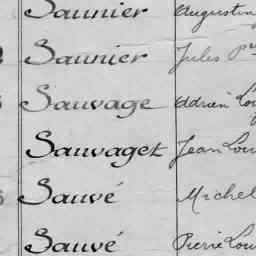 Saunier Augustin
Saunier Jules
Sauvage Adrien Lou
Sauvaget Jean Lou
Sauvé Michel
Sauvé Pierre Lou